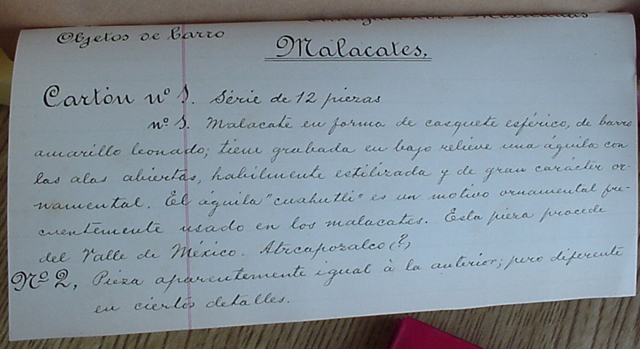 Objetos de barro
Malacates.
Cartón nº 1. Série de 12 piezas
nº 1. Malacate en forma de casquete esférico, de barro
amarillo leonado; tiene grabada en bajo relieve una águila con
las alas abiertas, habilmente estilizada y de gran carácter or-
namental. El águila "cuahutli" es un motivo ornamental fre-
cuentemente usado en los malacates. Esta pieza procede
del Valle de México. Atzcapozalco (?)
Nº 2, Pieza aparentemente igual à la anterior; pero diferente
en ciertos detalles.